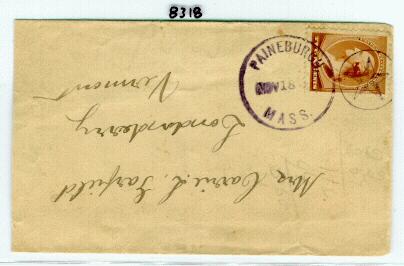 8318
PAINEBURG
NOV 18
MASS.
Mrs. Carrie L. Garfield
Londonderry
Vermont